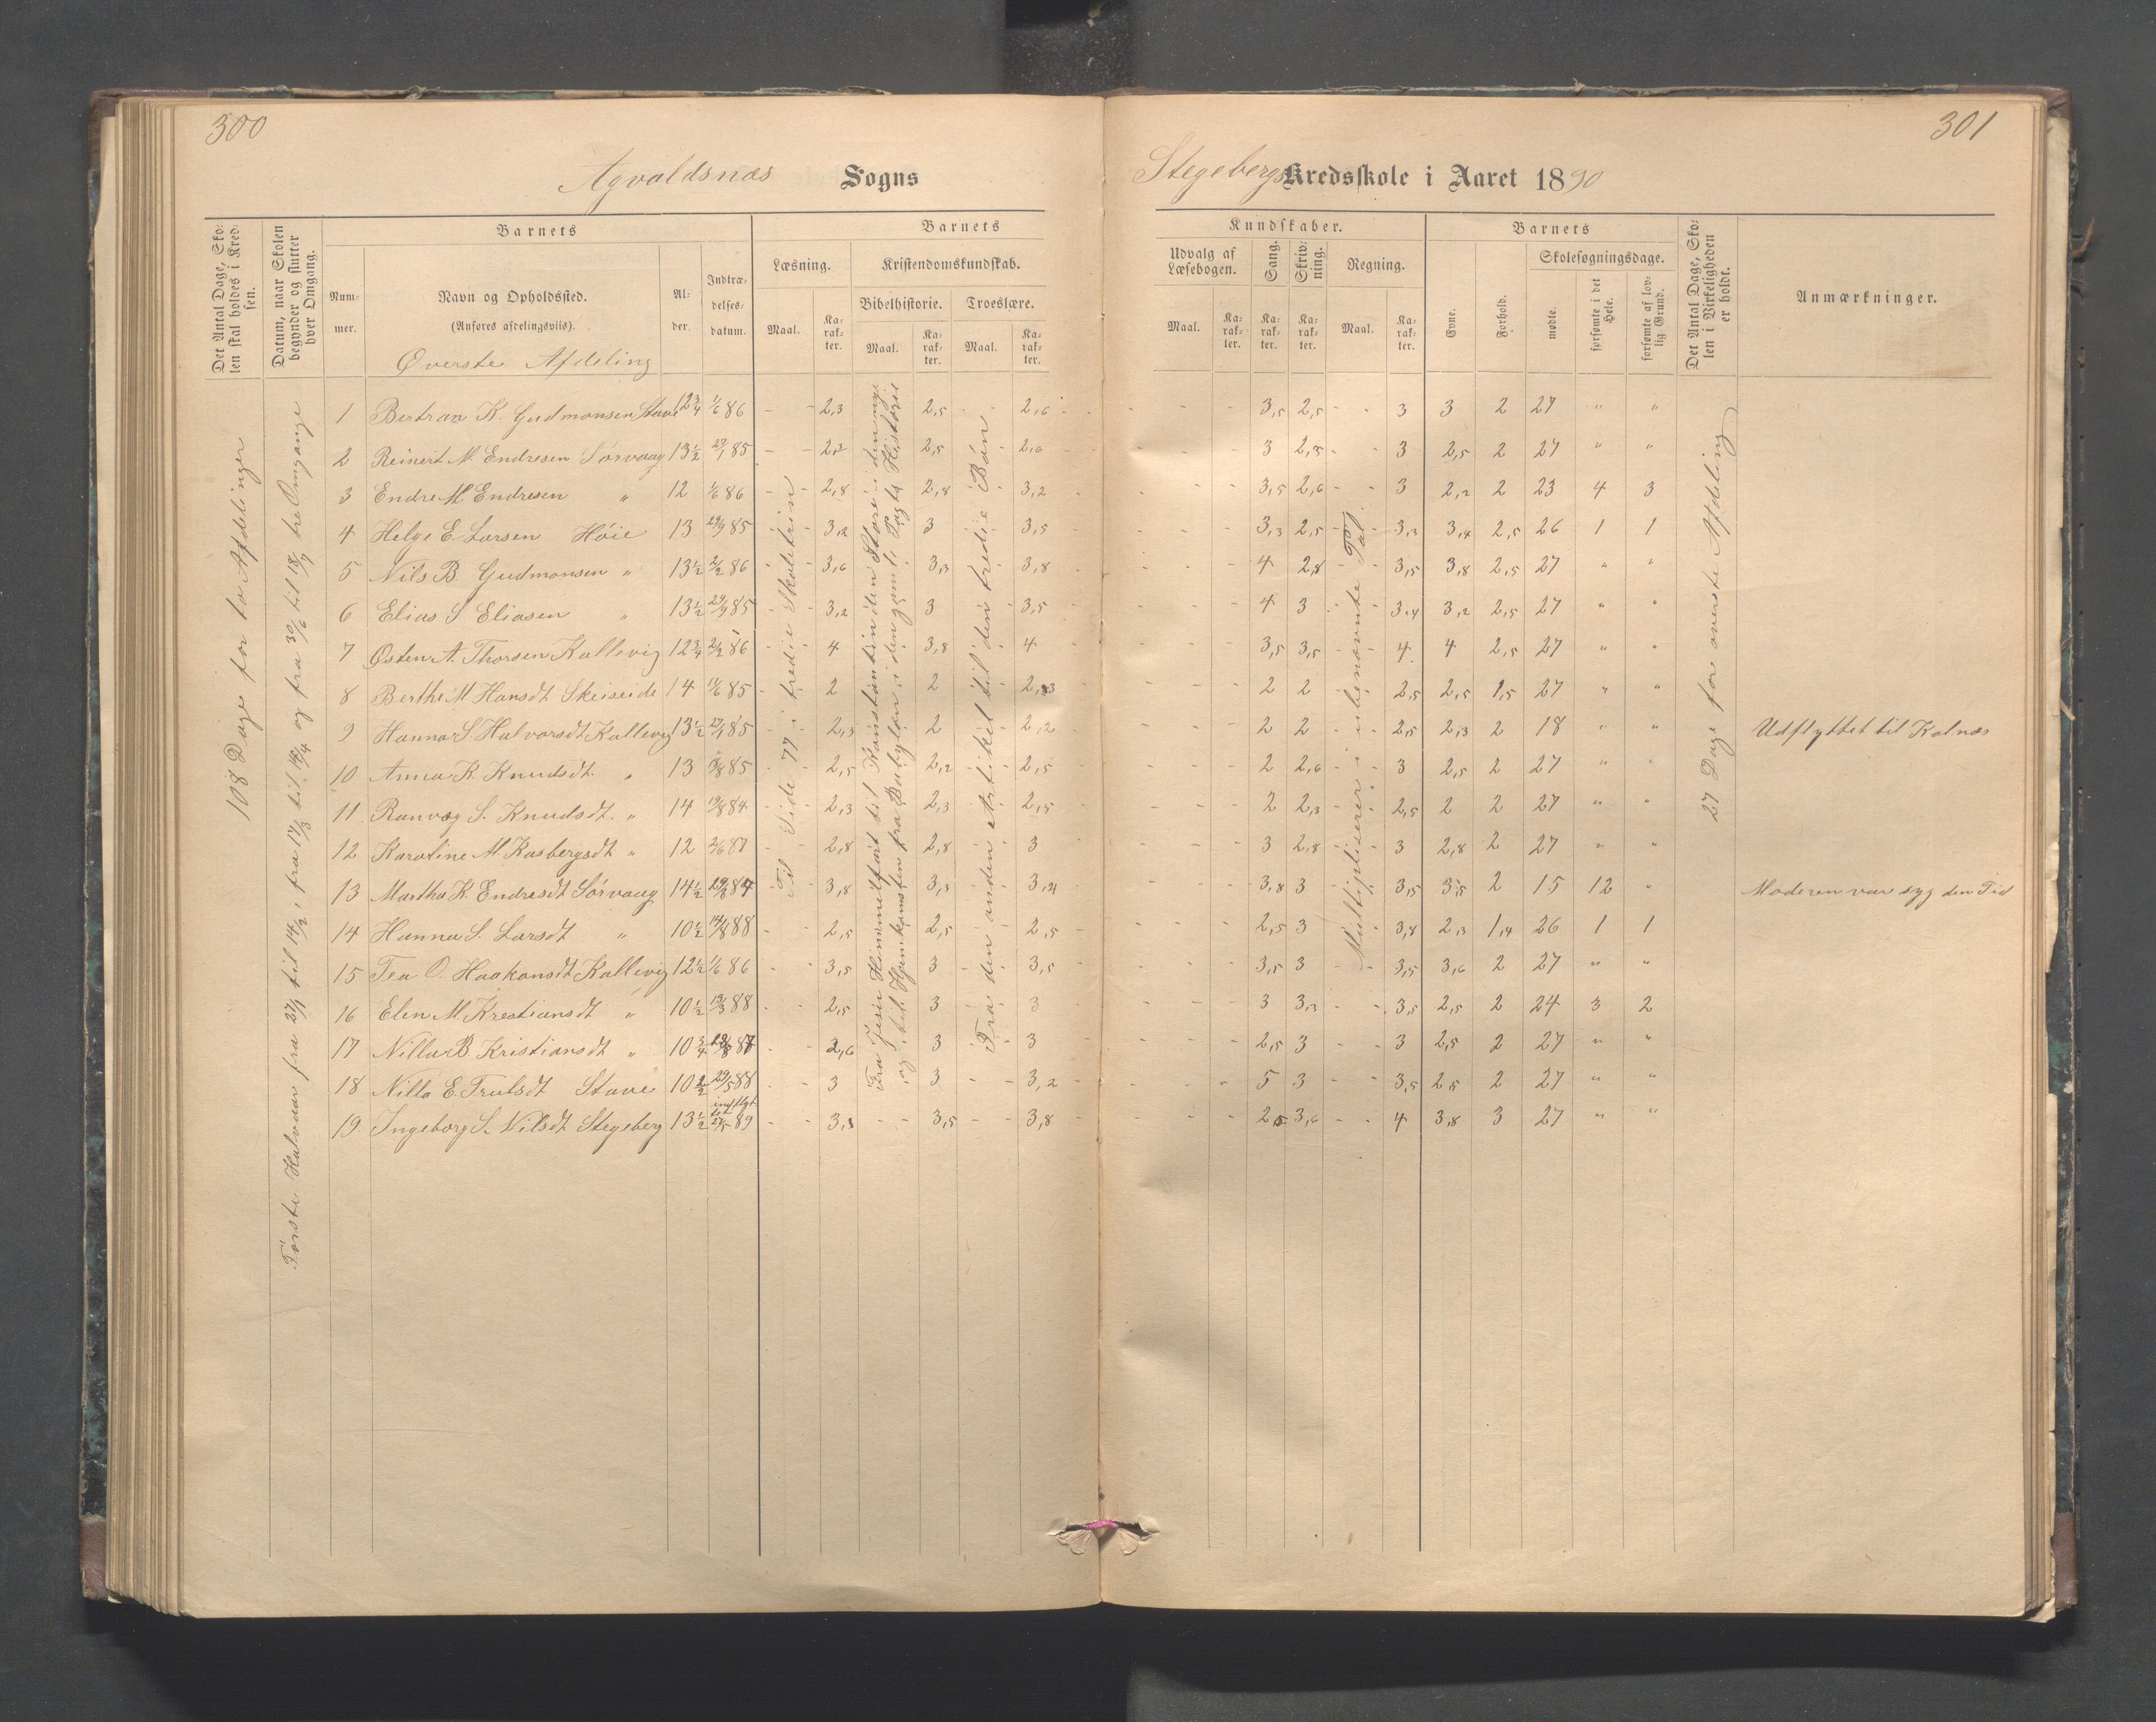 300
Agvaldsnæs Sogns
Det Antal Dage, Sko-
len skal holdes i Kred-
sen.
Datum, naar Skolen
begynder og slutter
hver Omgang.
Barnets
Num-
mer.
Navn og Opholdssted.
(Anføres afdelingsviis).
Øverste Afdeling
Al-
der.
Indtræ-
delses-
datum.
Barnets
Læsning.
Kristendomskundskab.
Bibelhistorie.
Troeslære.
Maal.
Ka-
rak-
ter.
Maal.
Ka-
rak-
ter.
Maal.
Ka-
rak-
ter.
108 Dage for to Afdelinger
Første Halvaar fra 27/1 til 14/2, fra 17/3 til 18/4 og fra 30/6 til 18/7 tre Omgange
Til Side 77 i tredie Skoletrin
Fra Jesu Himmelfart til Konstantin den Store i den nye
og til Hjemkomsten fra Babylon i den gamle Pagts Historie
Fra den anden Artikel til den tredie Bøn
1 Bertran K. Gudmonsen Stave 12 3/4 1/6 86 - - 2,3 2,5 - - 2,6
2 Reinert M. Endresen Sørvaag 13 1/2 27/1 85 - - 2,2 2,5 - 2,6
3 Endre M Endresen " 12 1/6 86 - - 2,8 2,8 - 3,2
4 Helge E. Larsen Høie 13 29/9 85 - - 3,2 3 - - 3,5
5 Nils B. Gudmonsen " 13 1/2 2/2 86 - - 3,6 3,3 - - 3,8
6 Elias S Eliasen " 13 1/2 29/9 85 - - 3,2 3 - 3,5
7 Østen A. Thorsen Kallevig 12 3/4 2/2 86 - - 4 3,8 - 4
8 Berthe M Hansdt Skeiseide 14 11/6 85 - - 2 2 - 2,3
9 Hanna S. Halvorsdt Kallevig 13 1/2 27/1 85 - - 2,3 2 - 2,2
10 Anna K. Knudsdt. " 13 3/8 85 - - 2,5 2,2 - - 2,5
11 Ranvæg S. Knudsdt. " 14 19/8 84 - - 2,3 2,3 - 2,5
12 Karoline M. Kasbergsdt " 12 2/6 87 - - 2,8 2,8 - 3
13 Martha K. Endresdt Sørvaag 14 1/2 3,8 3,3 - 3,4
14 Hanna S. Larsdt " 10 1/2 14/8 88 - - 2,5 2,5 - 2,5
15 Tea O. Haakonsdt Kallevig 12 1/2 1/6 86 - 3,5 3 - 3,5
16 Elen M Krestiansdt " 10 1/2 13/3 88 - - 2,5 3 - 3
17 Nilla B Kristiansdt " 10 3/4 - - 2,6 3 - 3
18 Nilla E. Trulsdt Stave 10 1/2 29/5 88 - - 3 3 - - 3,2
19. Ingeborg S. Nilsdt Stegeberg 13 1/2 indflyt
tet 27/5 89 - - 3,3 - - 3,5 - - 3,8
301
Stegebergs Kredsskole i Aaret 1890
Kundskaber.
Udvalg af
Læsebogen.
Sang.
Skriv-
ning.
Regning.
Maal.
Ka-
rak-
ter.
Ka-
rak-
ter.
Ka-
rak-
ter.
Maal.
Ka-
rak-
ter.
Barnets
Evne.
Forhold.
Skolesøgningsdage.
mødte.
forsømte i det
Hele.
forsømte af lov-
lig Grund.
Det Antal Dage, Sko-
len i Virkeligheden
er holdt.
Anmærkninger.
Multipliserer i ubenævnte Tal
27 Dage for øverste Afdeling
- - - 3,5 2,5 - - 3 3 2 27 " "
- - - 3 2,5 - - 3 2,5 2 27 " "
- - - 3,5 2,6 - - 3 2,2 2 23 4 3
- - - 3,3 2,5 - 3,3 3,4 2,5 26 1 1
- - - 4 2,8 - 3,5 3,8 2,5 27 " "
- - - 4 3 - 3,4 3,2 2,5 27 " "
- - - 3,5 3,5 - - 4 4 2,5 27 " "
- - - 2 2 - - 2,5 2,5 1,5 27 " "
- - - 2 2 - - 2,5 2,3 2 18 " " Udflyttet til Kolnæs
- - - 2 2,6 - - 3 2,5 2 27 " "
- - - 2 2,3 - - 2,5 2 2 27 " "
- - - 3 2,8 - - 3 2,8 2 27 " "
- - - 3,8 3 - - 3,5 3,5 2 15 12 " Moderen var syg den Tid
- - - 2,5 3 - 3,8 2,3 1,4 26 1 1
- - - 3,5 3 - - 3,5 3,6 2 27 " "
- - - 3 3,3 - - 3,5 2,5 2 24 3 2
- - - 2,5 3 - - 3 2,5 2 27 " "
- - - 5 3 - - 3,5 2,5 2 27 " "
- - - 2,5 3,6 - - 4 3,8 3 27 " "